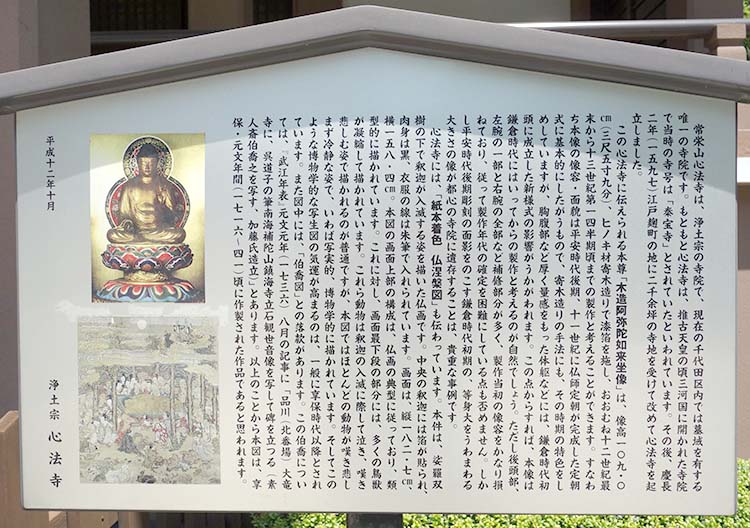 常栄山心法寺は、浄土宗の寺院で、現在の千代田区内では墓域を有する
唯一の寺院です。もともと心法寺は、推古天皇の頃三河国に開かれた寺院
で当時の寺号は「秦宝寺」とされていたといわれています。その後、慶長
二年（一五九七）江戸麹町の地に二千余坪の寺地を受けて改めて心法寺を起
立しました。
この心法寺に伝えられる本尊「木造阿弥陀如来坐像」は、像高一〇九・〇
cm（三尺五寸九分）、ヒノキ材寄木造りで漆箔を施し、おおむね十二世紀最
末から十三世紀第一四半期頃までの製作と考えることができます。すなわ
ち本像の像容・面貌は平安時代後期・十一世紀に仏師定朝が完成した定朝
式に基本的にしたがうもので、寄木造りの手法にも、その時期の特色をし
めしていますが、胸腹部など厚く重感をもった体躯などには、鎌倉時代初
頭に成立した新様式の影響がうかがわれます。この点からすれば、本像は
鎌倉時代にはいってからの製作と考えるのが自然でしょう。ただし後頭部、
左腕の一部と右腕の全部など補修部分が多く、製作当初の像容をかなり損
ねており、従って製作年代の確定を困難にしている点も否めません。しか
し平安時代後期彫刻の面影をのこす鎌倉時代初期の、等身大をうわまわる
大きさの像が都心の寺院に遺存することは、貴重な事例です。
心法寺には、「紙本着色 仏涅槃図」も伝わっています。本件は、娑羅双
樹の下で釈迦が入滅する姿を描いた仏画です。中央の釈迦には箔が貼られ、
肉身は黒、衣服の線は朱筆で入れられています。画面は、縦一八二・七cm、
横一五八・四cm。本図の画面上部の構成は、仏画の典型に従っており、類
型的に描かれています。これに対し、画面最下段の部分には、多くの鳥獣
が凝縮して描かれています。これら動物は釈迦の入滅に際して泣き、嘆き
悲しむ姿で描かれるのが普通ですが、本図ではほとんどの動物が嘆き悲し
まず冷静な姿で、いわば写実的、博物学的に描かれています。そしてこの
ような博物学的な写生図の気運が高まるのは、一般に享保時代以降とされ
ています。また図中には、「伯喬図」との落款があります。この伯喬につい
ては、「武江年表」元文元年（一七三六）八月の記事に「品川（北番場）大竜
寺に、呉道子の筆南海補陀山鎮海寺立石観世音像を写して碑を立つる（素
人斎伯喬之を写す、加藤氏造立）」とあります。以上のことから本図は、享
保・元文年間（一七一六〜四一）頃に作製された作品であると思われます。
平成十二年十月
浄土宗 心法寺